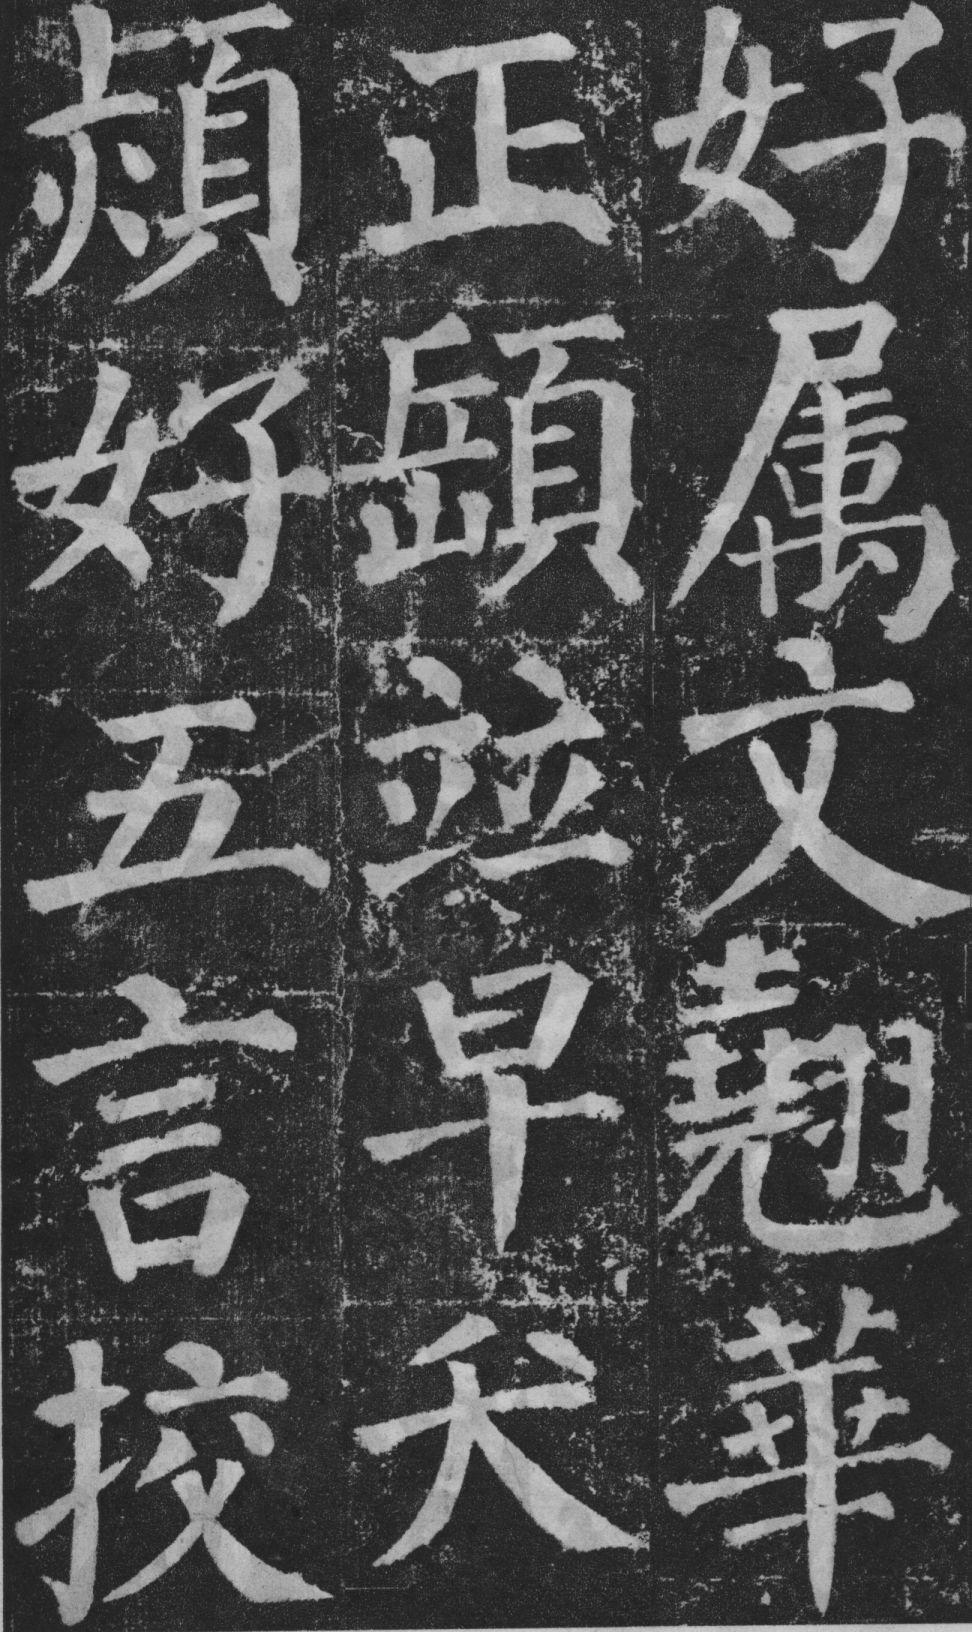 好属文翹華
正並早夭
好五言挍